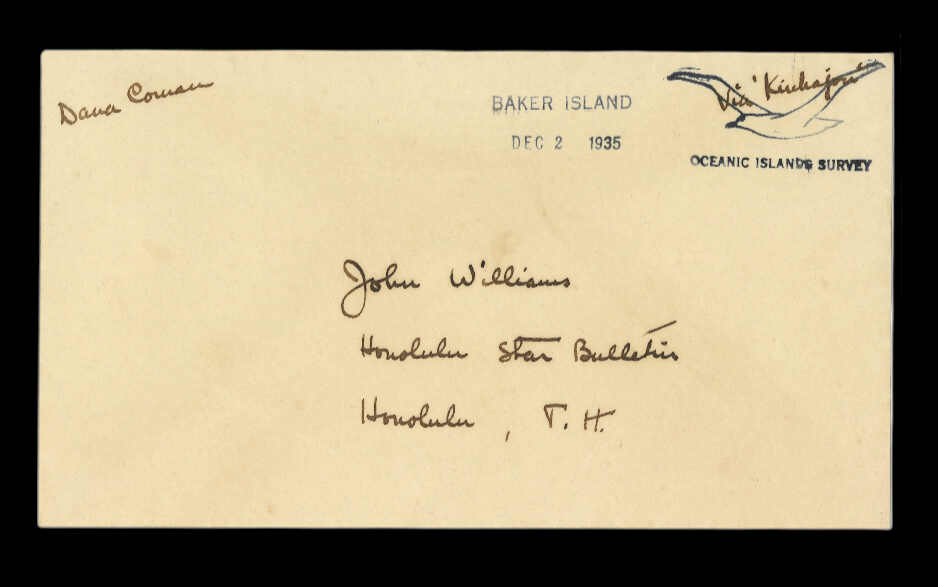 Dana Coman
BAKER ISLAND
DEC 2 1935
Via "Kinkajou"
OCEANIC ISLANDS SURVEY
John Williams
Honolulu Star Bulletin
Honolulu, T. H.